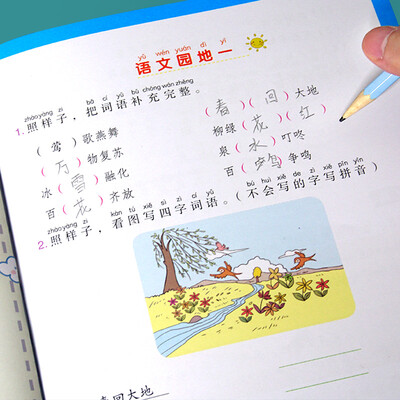 yǔ wén yuán dì yī
语文园地一
zhào yàng zi bǎ cí yǔ bǔ chōng wán zhěng
1.照样子，把词语补充完整。
(莺)歌燕舞 (春)(回)大地
(万)物复苏 柳绿(花)(红)
冰(雪)融化 泉(水)叮咚
百(花)齐放 百(鸟)争鸣
zhào yàng zi kàn tú xiě sì zì cí yǔ bú huì xiě de zì xiě pīn yīn
2.照样子，看图写四字词语。(不会写的字写拼音)
春回大地